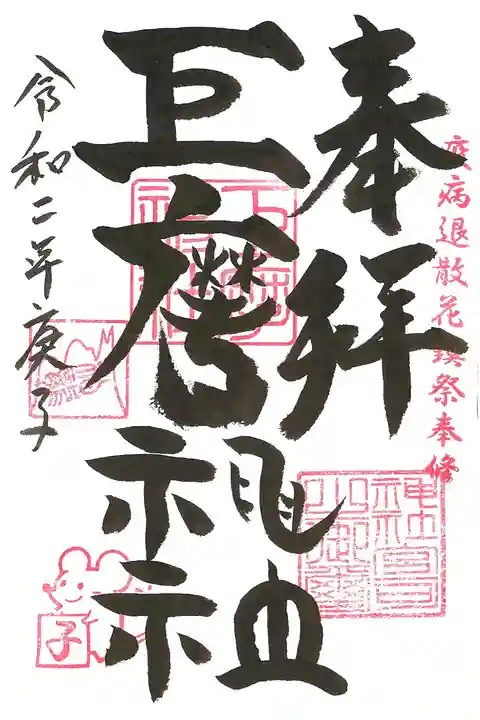 疫病退散花鎮祭奉修
奉拝
巨摩神社
令和二年庚子
子